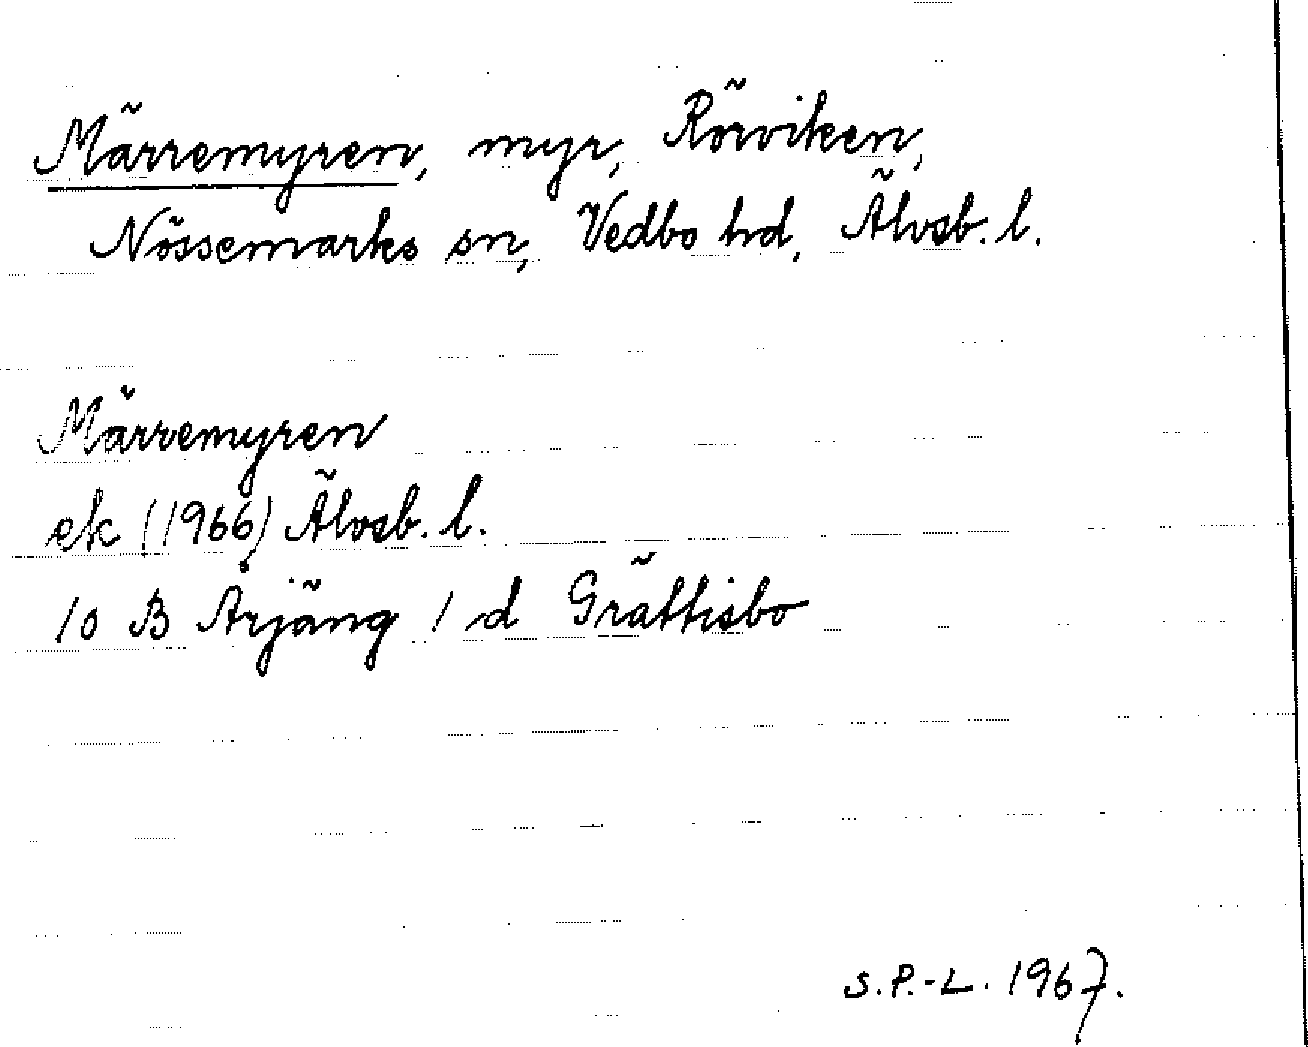 Märremyren, myr, Rörviken,
Nössemarks sn, Vedbo hd, Älvsb. l.
Märremyren
ek (1966) Älvsb. l.
10 B Årjäng 1 d Grättisbo
S.P.-L. 1967.